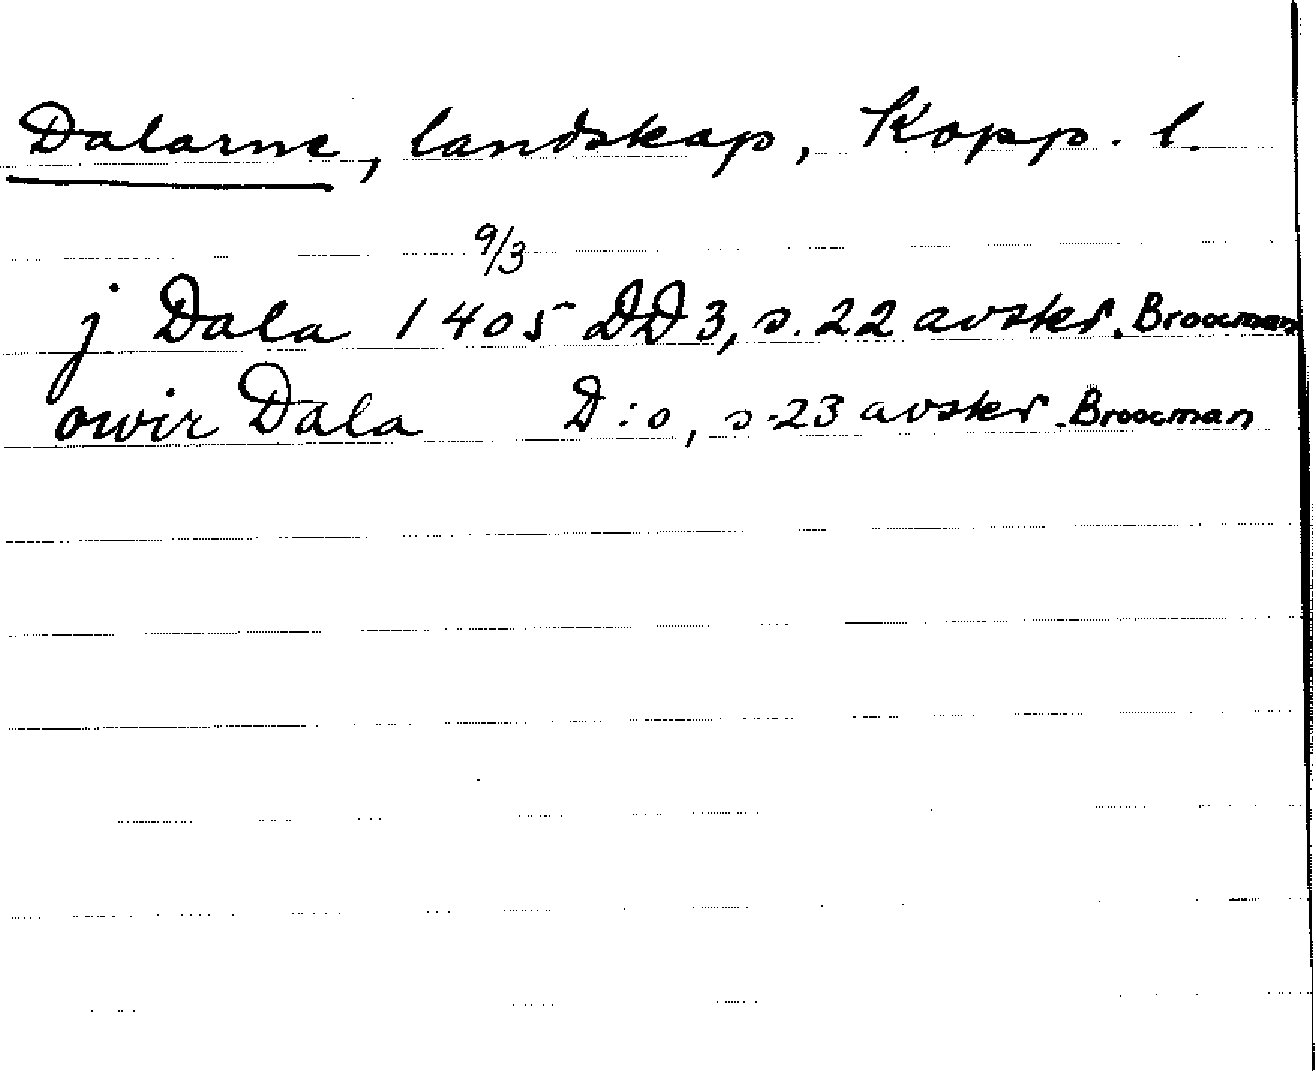 Dalarne, landskap, Kopp. l.
9/3
j Dala 1405 DD 3, s. 22 avskr. Broocman
owir Dala D:o, s. 23 avskr. Broocman